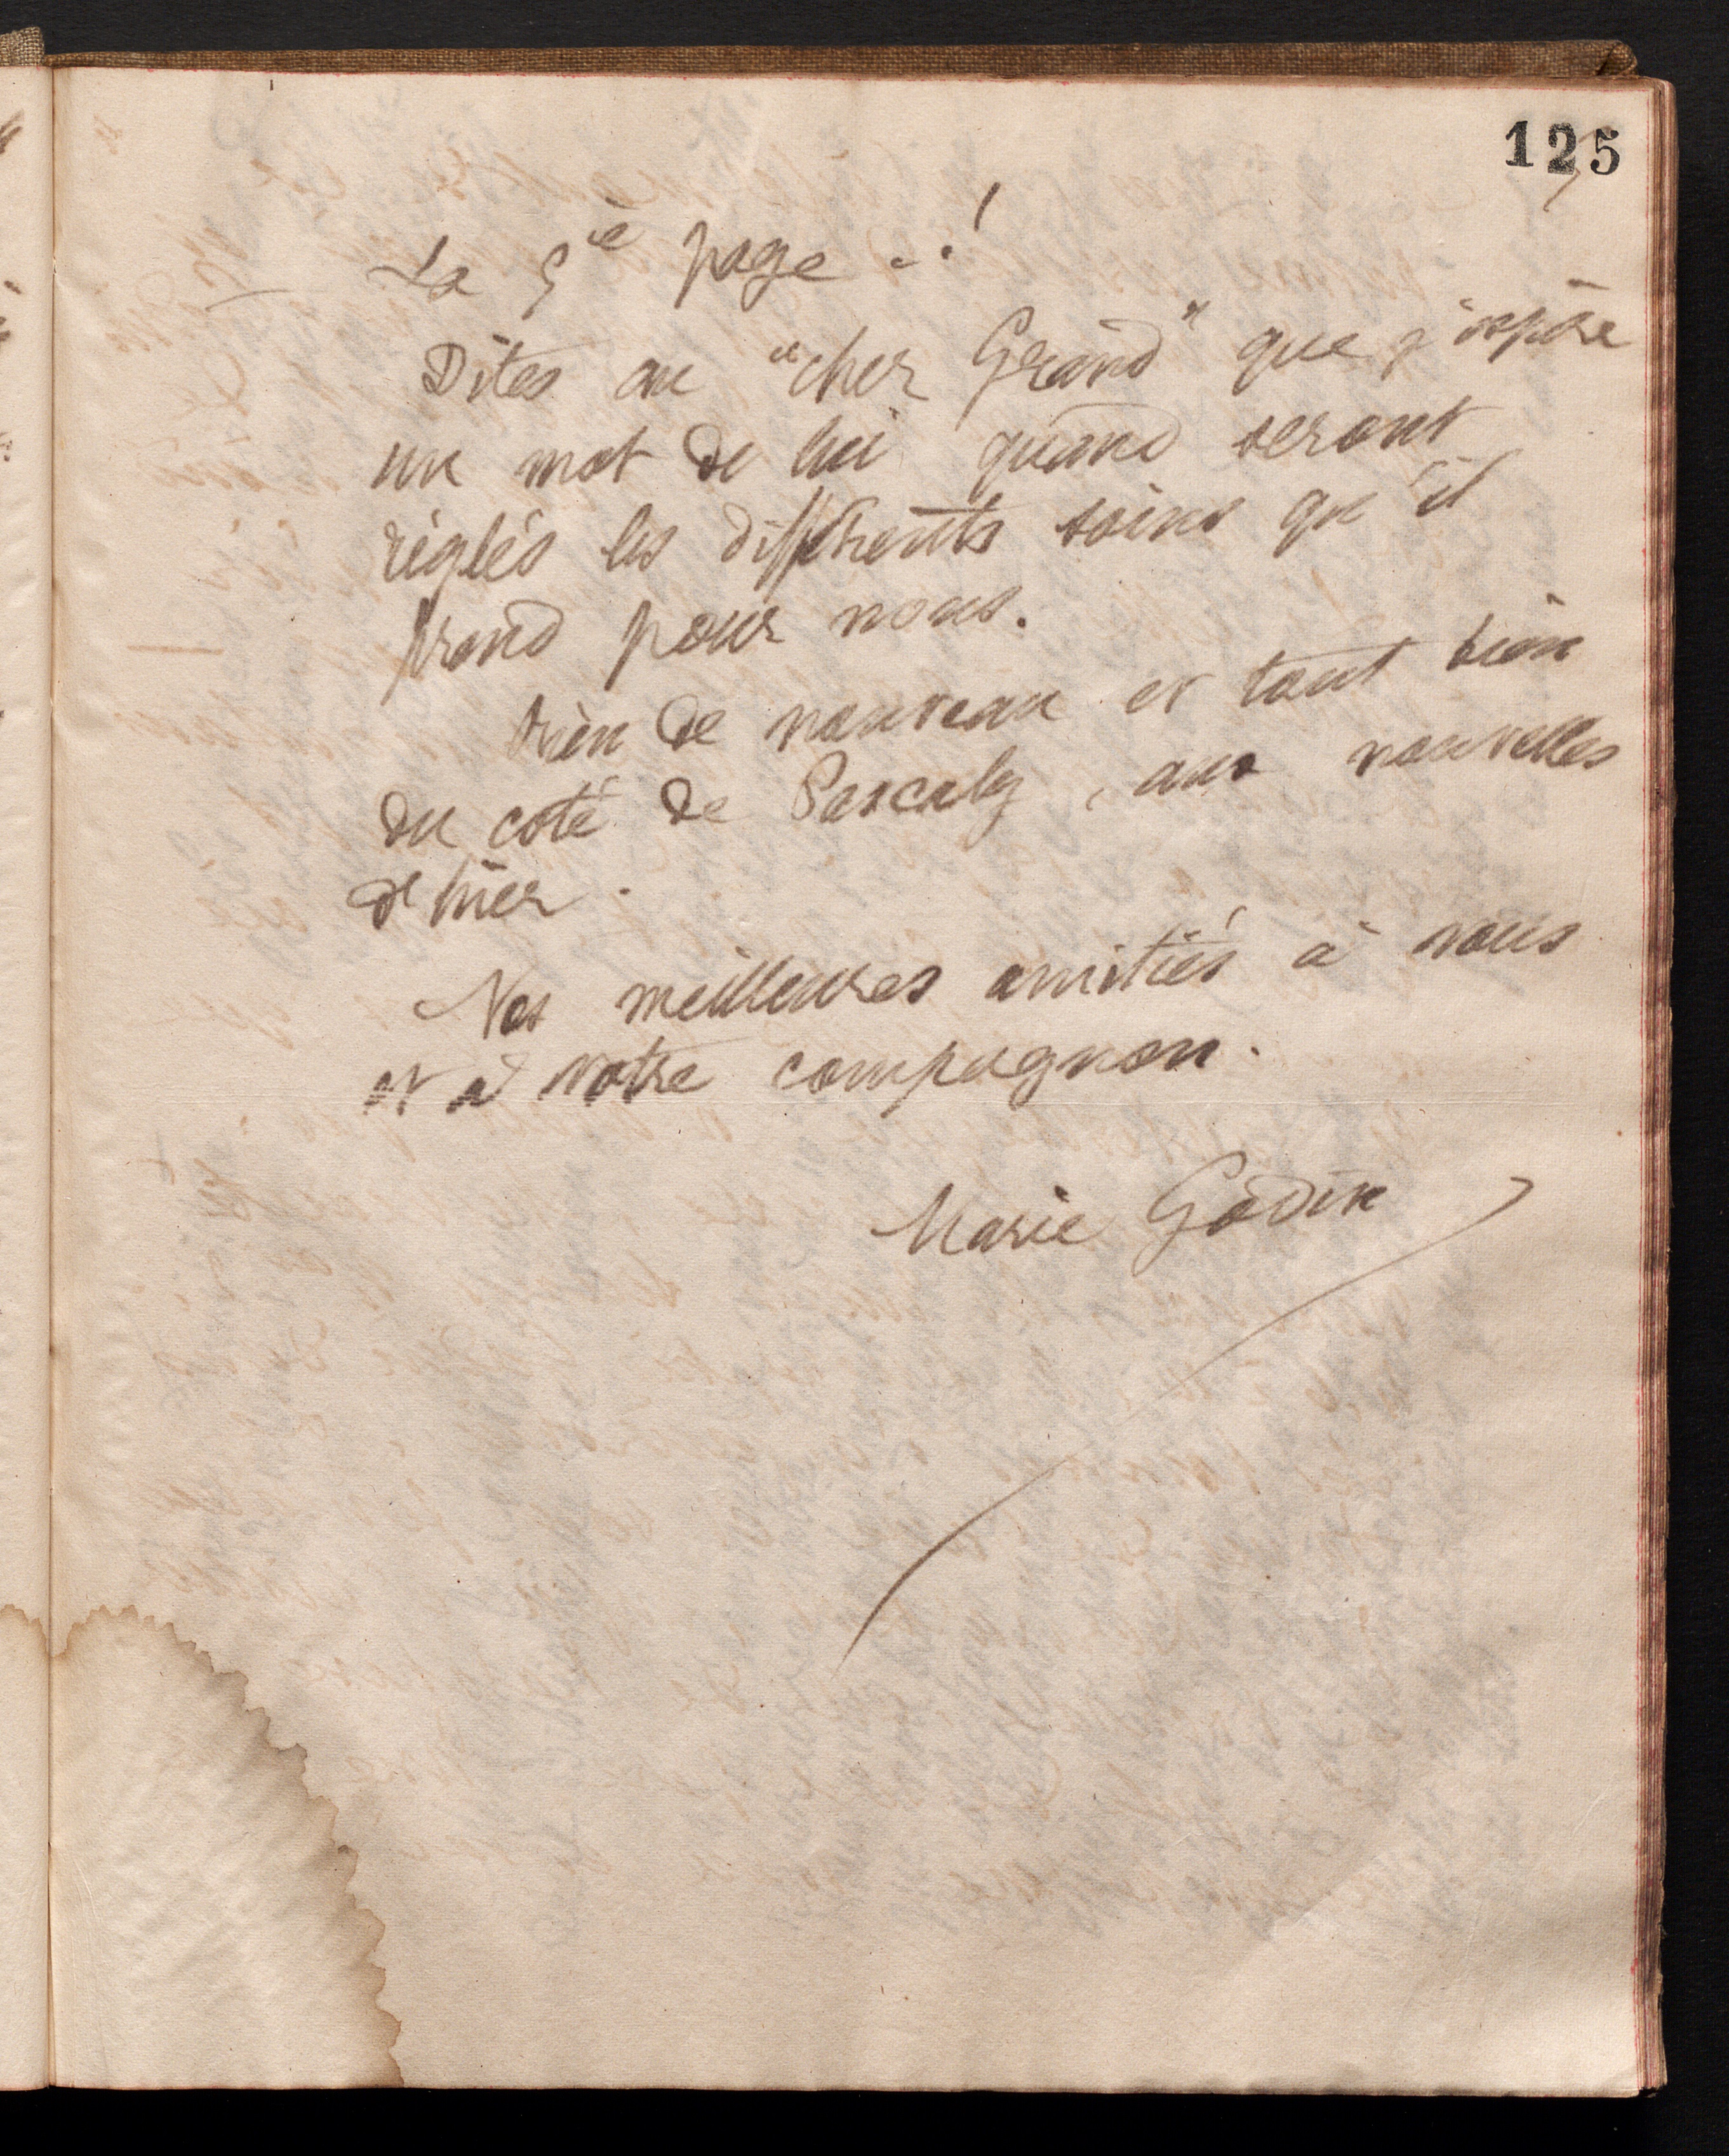 125
5
La 5ie page ..!
Dites au "cher Grand" que j'espère
un mot de lui quand seront
réglés les différents soins qu'il
prend pour nous.
Rien de nouveau et tout bien
du coté de Pascaly, aux nouvelles
d'hier.
Nos meilleures amitiés à vous
et à votre compagnon.
Marie Godin